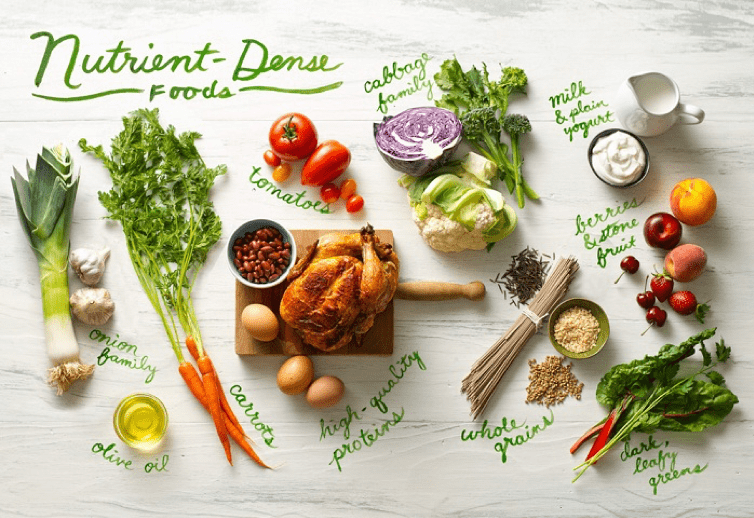 Nutrient-Dense
Foods
cabbage
family
milk
& plain
yogurt
tomatoes
berries
& stone
fruit
onion
family
carrots
high-quality
proteins
whole
grains
olive oil
dark,
leafy
greens